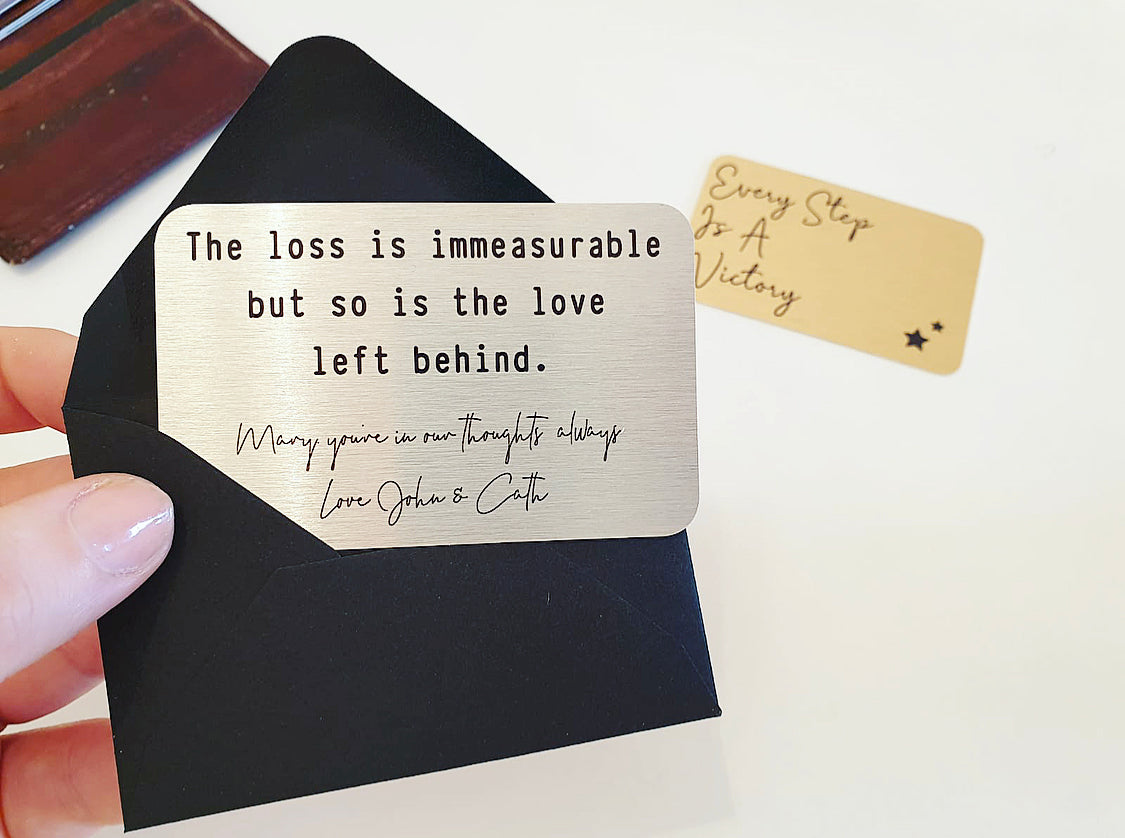 The loss is immeasurable
but so is the love
left behind.
Mary you're in our thoughts always
Love John & Cath
Every Step
Is A
Victory